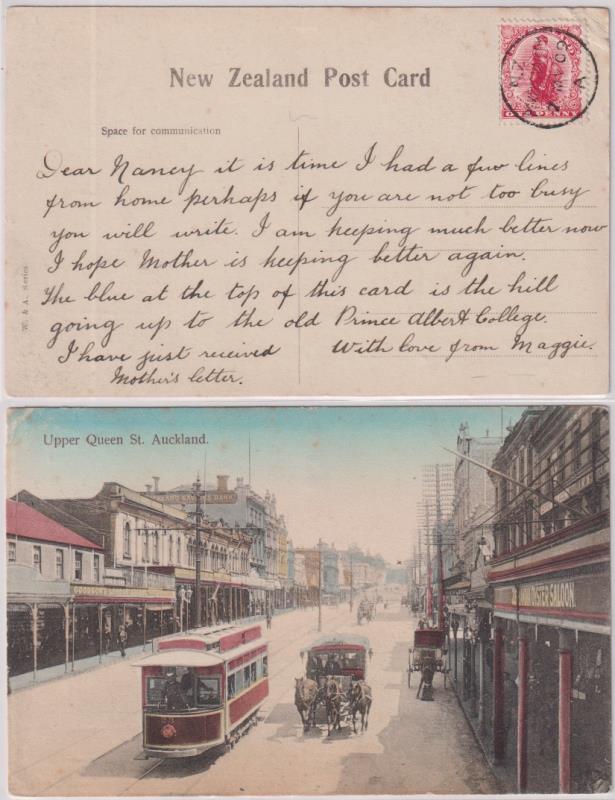 New Zealand Post Card
Space for communication
ONE PENNY
W. & A. Series
Dear Nancy it is time I had a few lines
from home perhaps if you are not too busy
you will write. I am keeping much better now
I hope Mother is keeping better again.
The blue at the top of this card is the hill
going up to the old Prince Albert College.
I have just received With love from Maggie.
Mother's letter.
Upper Queen St. Auckland.
SAVINGS BANK
OYSTER SALOON